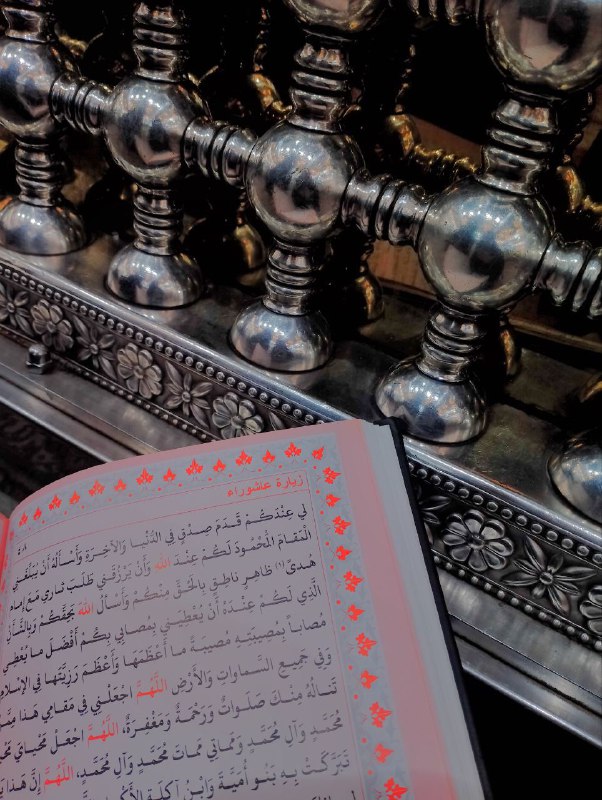 زيارة عاشوراء
لِي عِنْدَكُمْ قَدَمَ صِدْقٍ فِي الدُّنْيَا وَالآخِرَةِ وَأَسْأَلُهُ أَنْ يُبَلِّغَنِي
الْمَقَامَ الْمَحْمُودَ لَكُمْ عِنْدَ اللهِ وَأَنْ يَرْزُقَنِي طَلَبَ ثَارِي مَعَ إِمَامِ
هُدىً (١) ظَاهِرٍ نَاطِقٍ بِالْحَقِّ مِنْكُمْ وَأَسْأَلُ اللهَ بِحَقِّكُمْ وَبِالشَّأْنِ
الَّذِي لَكُمْ عِنْدَهُ أَنْ يُعْطِيَنِي بِمُصَابِي بِكُمْ أَفْضَلَ مَا يُعْطِي
مُصَاباً بِمُصِيبَتِهِ مُصِيبَةً مَا أَعْظَمَهَا وَأَعْظَمَ رَزِيَّتَهَا فِي الإِسْلامِ
وَفِي جَمِيعِ السَّمَاوَاتِ وَالأَرْضِ اللَّهُمَّ اجْعَلْنِي فِي مَقَامِي هَذَا مِمَّنْ
تَنَالُهُ مِنْكَ صَلَوَاتٌ وَرَحْمَةٌ وَمَغْفِرَةٌ، اللَّهُمَّ اجْعَلْ مَحْيَايَ
مُحَمَّدٍ وَآلِ مُحَمَّدٍ وَمَمَاتِي مَمَاتَ مُحَمَّدٍ وَآلِ مُحَمَّدٍ، اللَّهُمَّ إِنَّ هَذَا
تَبَرَّكَتْ بِهِ بَنُو أُمَيَّةَ وَابْنُ آكِلَةِ